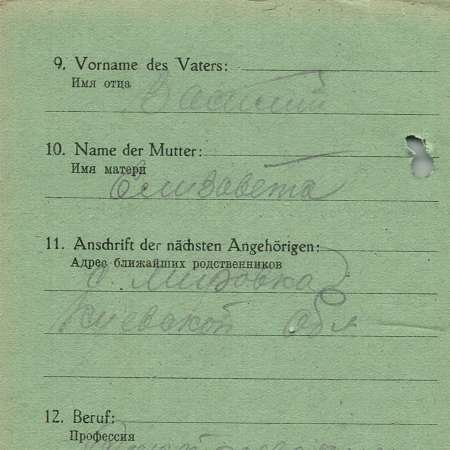 9. Vorname des Vaters:
Имя отца
Василий
10. Name der Mutter:
Имя матери
Елизавета
11. Anschrift der nächsten Angehörigen:
Адрес ближайших родственников
с.
Киевской обл
12. Beruf:
Профессия